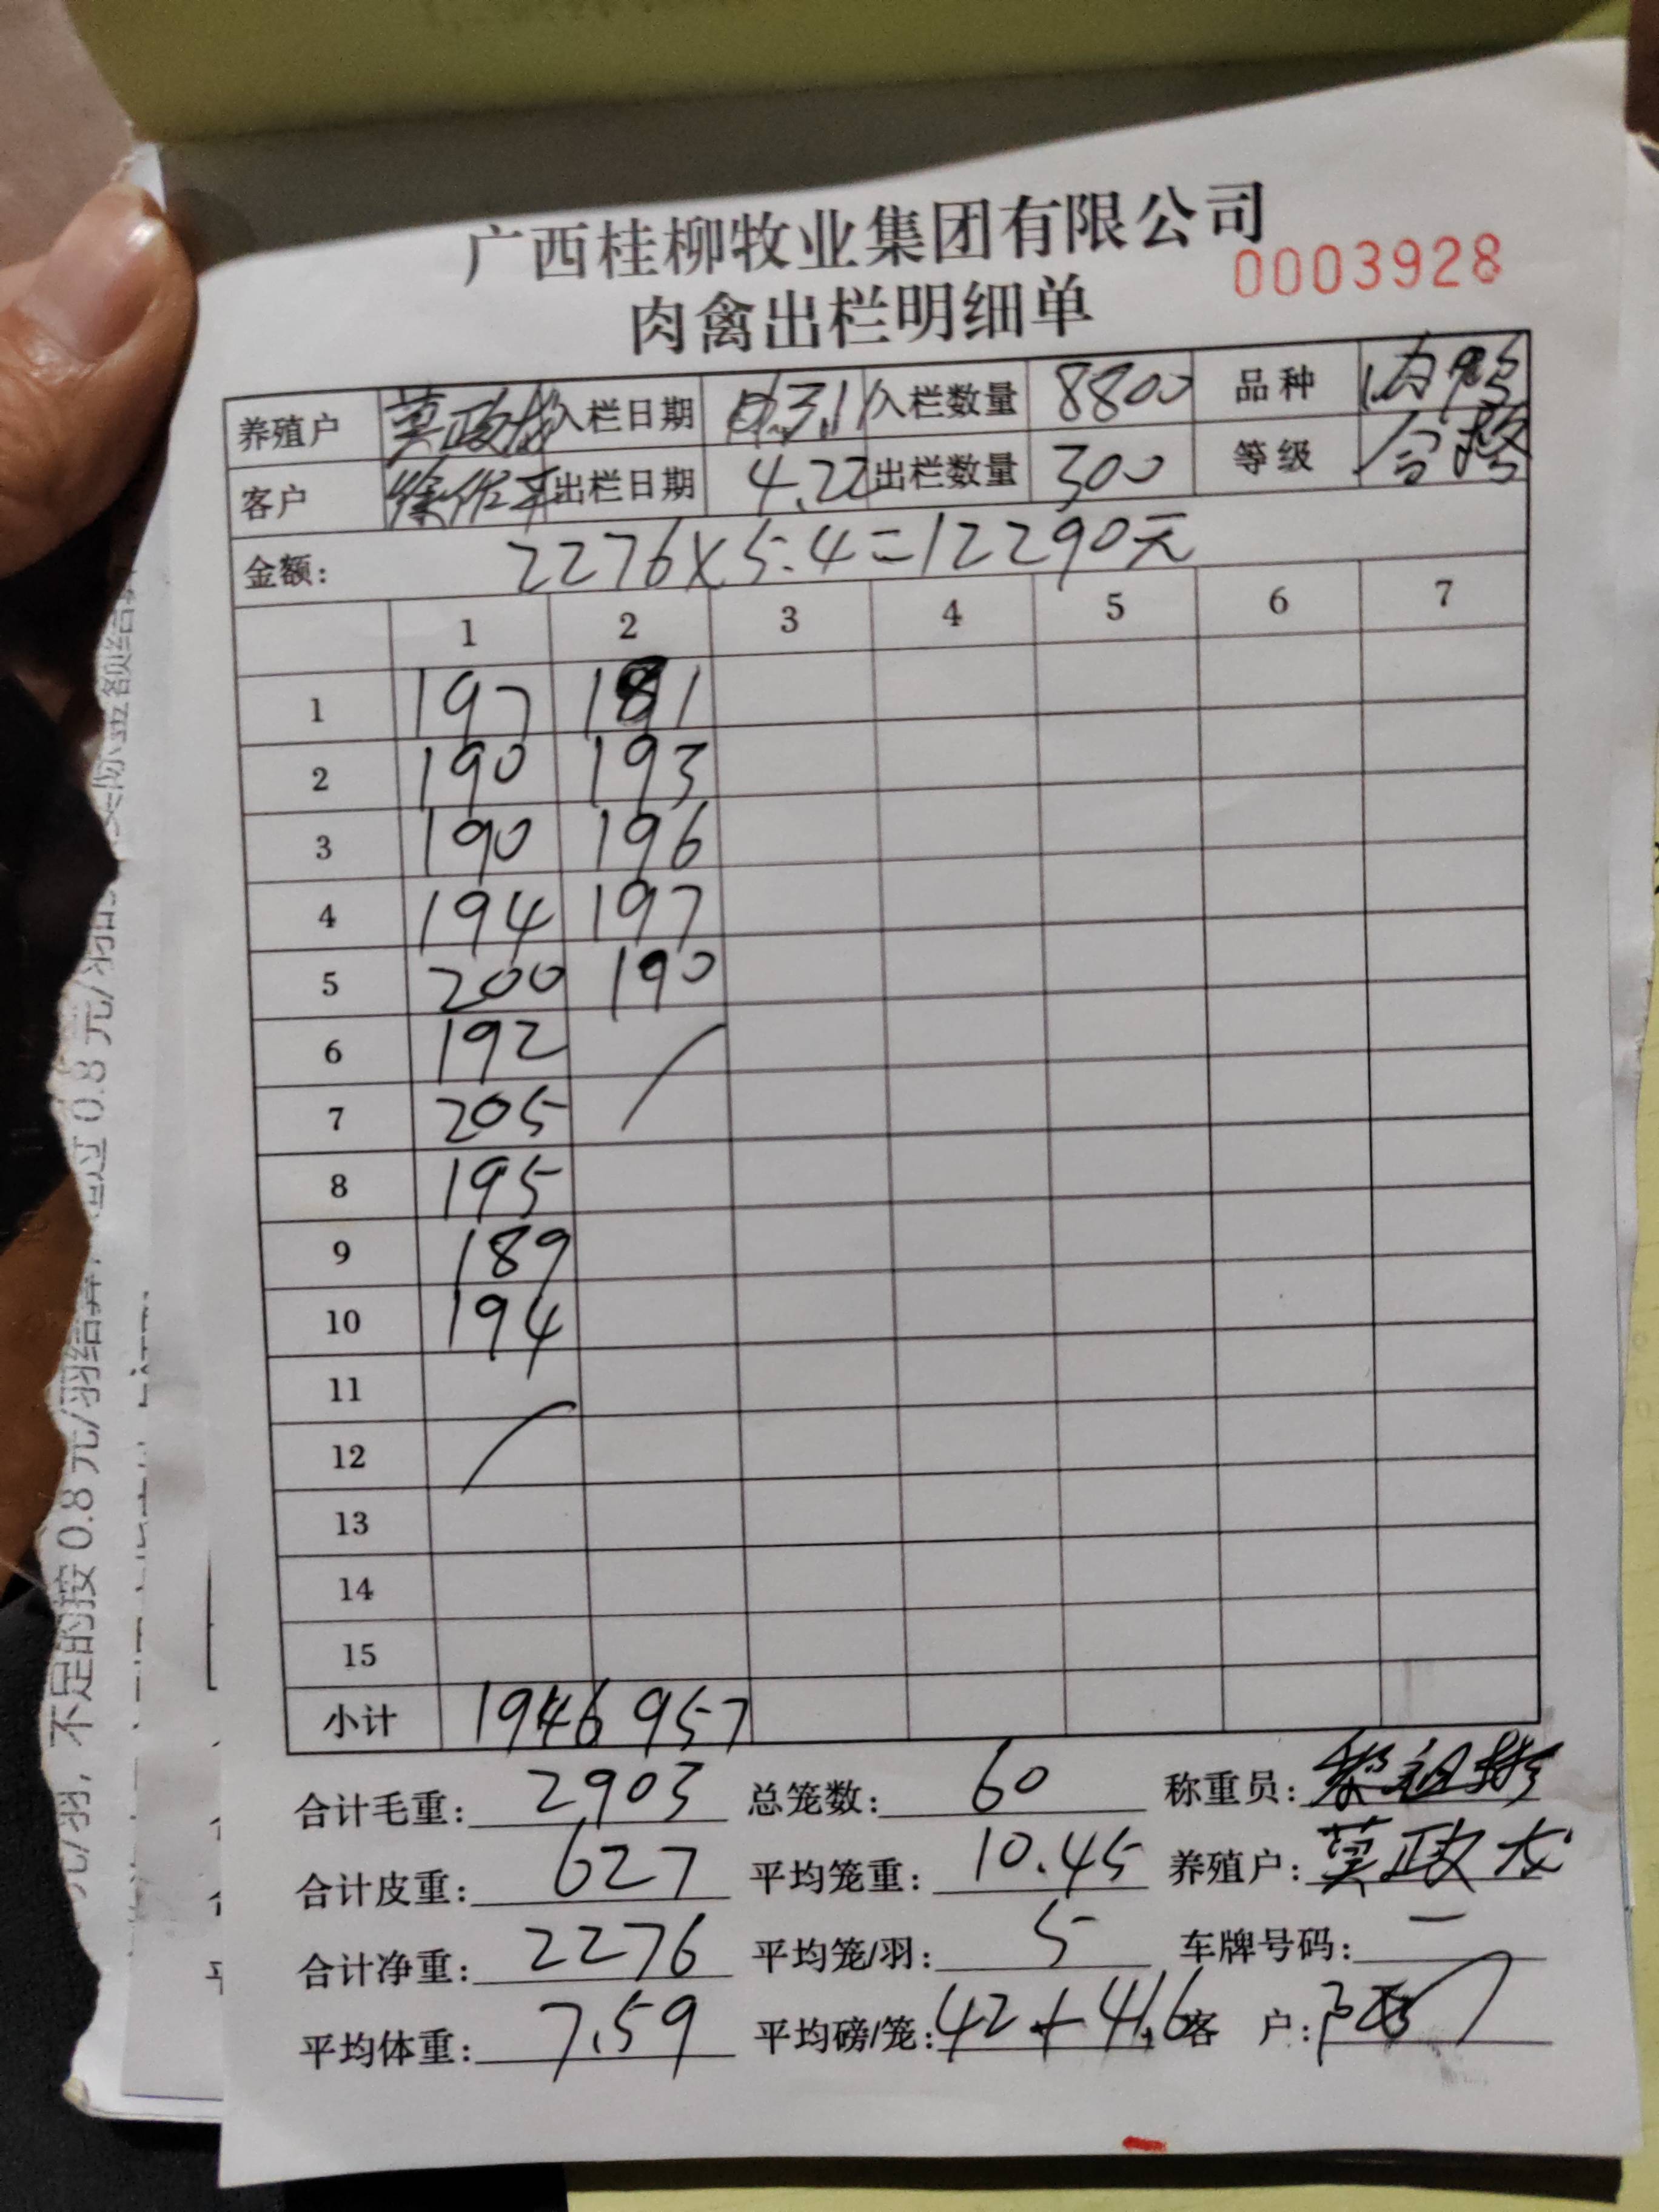 广西桂柳牧业集团有限公司
0003928
肉禽出栏明细单
养殖户 莫政龙 入栏日期 3.11 入栏数量 8800 品种 肉鸭
客户 出栏日期 4.22 出栏数量 300 等级 合格
金额: 2276×5.4=12290元
1 2 3 4 5 6 7
1 197 181
2 190 193
3 190 196
4 194 197
5 200 190
6 192
7 205
8 195
9 189
10 194
11
12
13
14
15
小计 1946 957
合计毛重: 2903 总笼数: 60 称重员:
合计皮重: 627 平均笼重: 10.45 养殖户: 莫政龙
合计净重: 2276 平均笼/羽: 5 车牌号码: 一
平均体重: 7.59 平均磅/笼: 42+41.6 客 户:
元/羽,不足的按0.8元/羽结算
过0.8元/羽